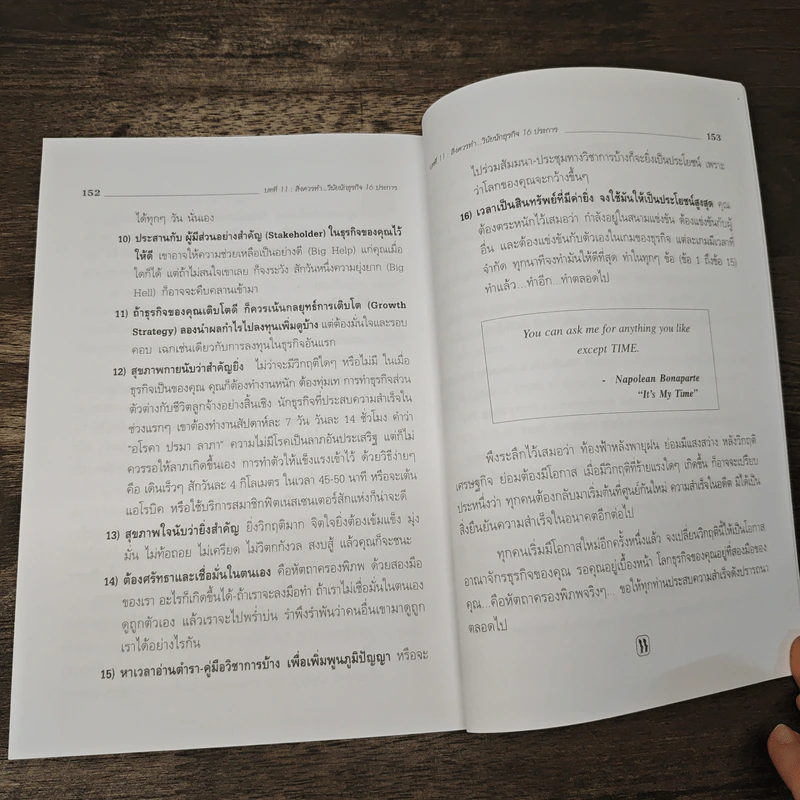 152 บทที่ 11 : สิ่งควรทำ...วินัยนักธุรกิจ 16 ประการ
ได้ทุกๆ วัน นั่นเอง
10) ประสานกับ ผู้มีส่วนอย่างสำคัญ (Stakeholder) ในธุรกิจของคุณไว้
ให้ดี เขาอาจให้ความช่วยเหลือเป็นอย่างดี (Big Help) แก่คุณเมื่อ
ใดก็ได้ แต่ถ้าไม่สนใจเขาเลย ก็จงระวัง สักวันหนึ่งความยุ่งยาก (Big
Hell) ก็อาจจะคืบคลานเข้ามา
11) ถ้าธุรกิจของคุณเติบโตดี ก็ควรเน้นกลยุทธ์การเติบโต (Growth
Strategy) ลองนำผลกำไรไปลงทุนเพิ่มดูบ้าง แต่ต้องมั่นใจและรอบ
คอบ เฉกเช่นเดียวกับการลงทุนในธุรกิจอันแรก
12) สุขภาพกายนับว่าสำคัญยิ่ง ไม่ว่าจะมีวิกฤติใดๆ หรือไม่มี ในเมื่อ
ธุรกิจเป็นของคุณ คุณก็ต้องทำงานหนัก ต้องทุ่มเท การทำธุรกิจส่วน
ตัวต่างกับชีวิตลูกจ้างอย่างสิ้นเชิง นักธุรกิจที่ประสบความสำเร็จใน
ช่วงแรกๆ เขาต้องทำงานสัปดาห์ละ 7 วัน วันละ 14 ชั่วโมง คำว่า
“อโรคา ปรมา ลาภา” ความไม่มีโรคเป็นลาภอันประเสริฐ แต่ก็ไม่
ควรรอให้ลาภเกิดขึ้นเอง การทำตัวให้แข็งแรงเข้าไว้ ด้วยวิธีง่ายๆ
คือ เดินเร็วๆ สักวันละ 4 กิโลเมตร ในเวลา 45-50 นาที หรือจะเต้น
แอโรบิค หรือใช้บริการสมาชิกฟิตเนสเซนเตอร์สักแห่งก็น่าจะดี
13) สุขภาพใจนับว่ายิ่งสำคัญ ยิ่งวิกฤติมาก จิตใจยิ่งต้องเข้มแข็ง มุ่ง
มั่น ไม่ท้อถอย ไม่เครียด ไม่วิตกกังวล สงบสู้ แล้วคุณก็จะชนะ
14) ต้องศรัทธาและเชื่อมั่นในตนเอง คือหัตถาครองพิภพ ด้วยสองมือ
ของเรา อะไรก็เกิดขึ้นได้-ถ้าเราจะลงมือทำ ถ้าเราไม่เชื่อมั่นในตนเอง
ดูถูกตัวเอง แล้วเราจะไปพร่ำบ่น รำพึงรำพันว่าคนอื่นเขามาดูถูก
เราได้อย่างไรกัน
15) หาเวลาอ่านตำรา-คู่มือวิชาการบ้าง เพื่อเพิ่มพูนภูมิปัญญา หรือจะ
บทที่ 11 : สิ่งควรทำ...วินัยนักธุรกิจ 16 ประการ 153
ไปร่วมสัมมนา-ประชุมทางวิชาการบ้างก็จะยิ่งเป็นประโยชน์ เพราะ
ว่าโลกของคุณจะกว้างขึ้นๆ
16) เวลาเป็นสินทรัพย์ที่มีค่ายิ่ง จงใช้มันให้เป็นประโยชน์สูงสุด คุณ
ต้องตระหนักไว้เสมอว่า กำลังอยู่ในสนามแข่งขัน ต้องแข่งขันกับผู้
อื่น และต้องแข่งขันกับตัวเองในเกมของธุรกิจ แต่ละเกมมีเวลาที่
จำกัด ทุกนาทีจงทำมันให้ดีที่สุด ทำในทุกๆ ข้อ (ข้อ 1 ถึงข้อ 15)
ทำแล้ว...ทำอีก...ทำตลอดไป
You can ask me for anything you like
except TIME.
- Napolean Bonaparte
“It's My Time”
พึงระลึกไว้เสมอว่า ท้องฟ้าหลังพายุฝน ย่อมมีแสงสว่าง หลังวิกฤติ
เศรษฐกิจ ย่อมต้องมีโอกาส เมื่อมีวิกฤติที่ร้ายแรงใดๆ เกิดขึ้น ก็อาจจะเปรียบ
ประหนึ่งว่า ทุกคนต้องกลับมาเริ่มต้นที่ศูนย์กันใหม่ ความสำเร็จในอดีต มิได้เป็น
สิ่งยืนยันความสำเร็จในอนาคตอีกต่อไป
ทุกคนเริ่มมีโอกาสใหม่อีกครั้งหนึ่งแล้ว จงเปลี่ยนวิกฤตินี้ให้เป็นโอกาส
อาณาจักรธุรกิจของคุณ รอคุณอยู่เบื้องหน้า โลกธุรกิจของคุณอยู่ที่สองมือของ
คุณ...คือหัตถาครองพิภพจริงๆ... ขอให้ทุกท่านประสบความสำเร็จดังปรารถนา
ตลอดไป